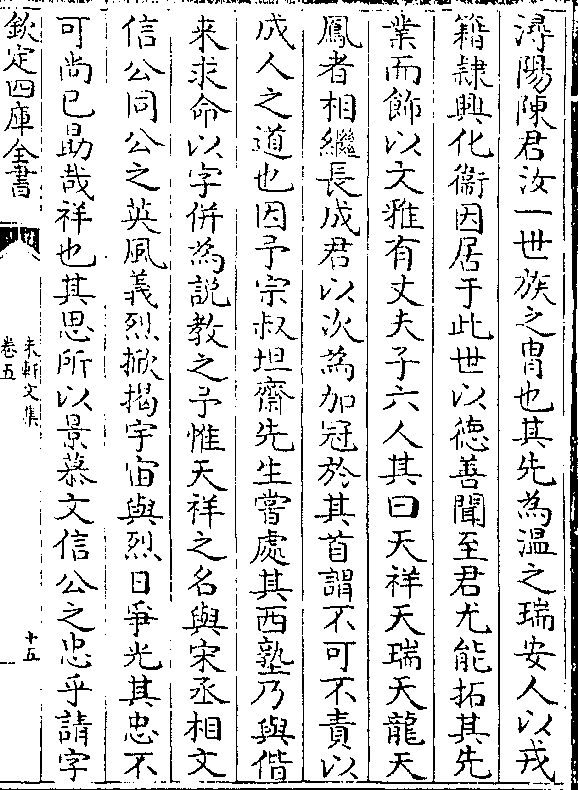 潯陽陳君汝一世族之胄也其先為溫之瑞安人以戎
籍隷興化衞因居于此世以德善聞至君尤能拓其先
業而飾以文雅有丈夫子六人其曰天祥天瑞天龍天
鳳者相繼長成君以次為加冠於其首謂不可不責以
成人之道也因予宗叔坦齋先生嘗處其西塾乃與偕
来求命以字併為説教之予惟天祥之名與宋丞相文
信公同公之英風義烈掀揭宇宙與烈日爭光其忠不
可尚已勗哉祥也其思所以景慕文信公之忠乎請字
欽定四庫全書
未軒文集
卷五
十五